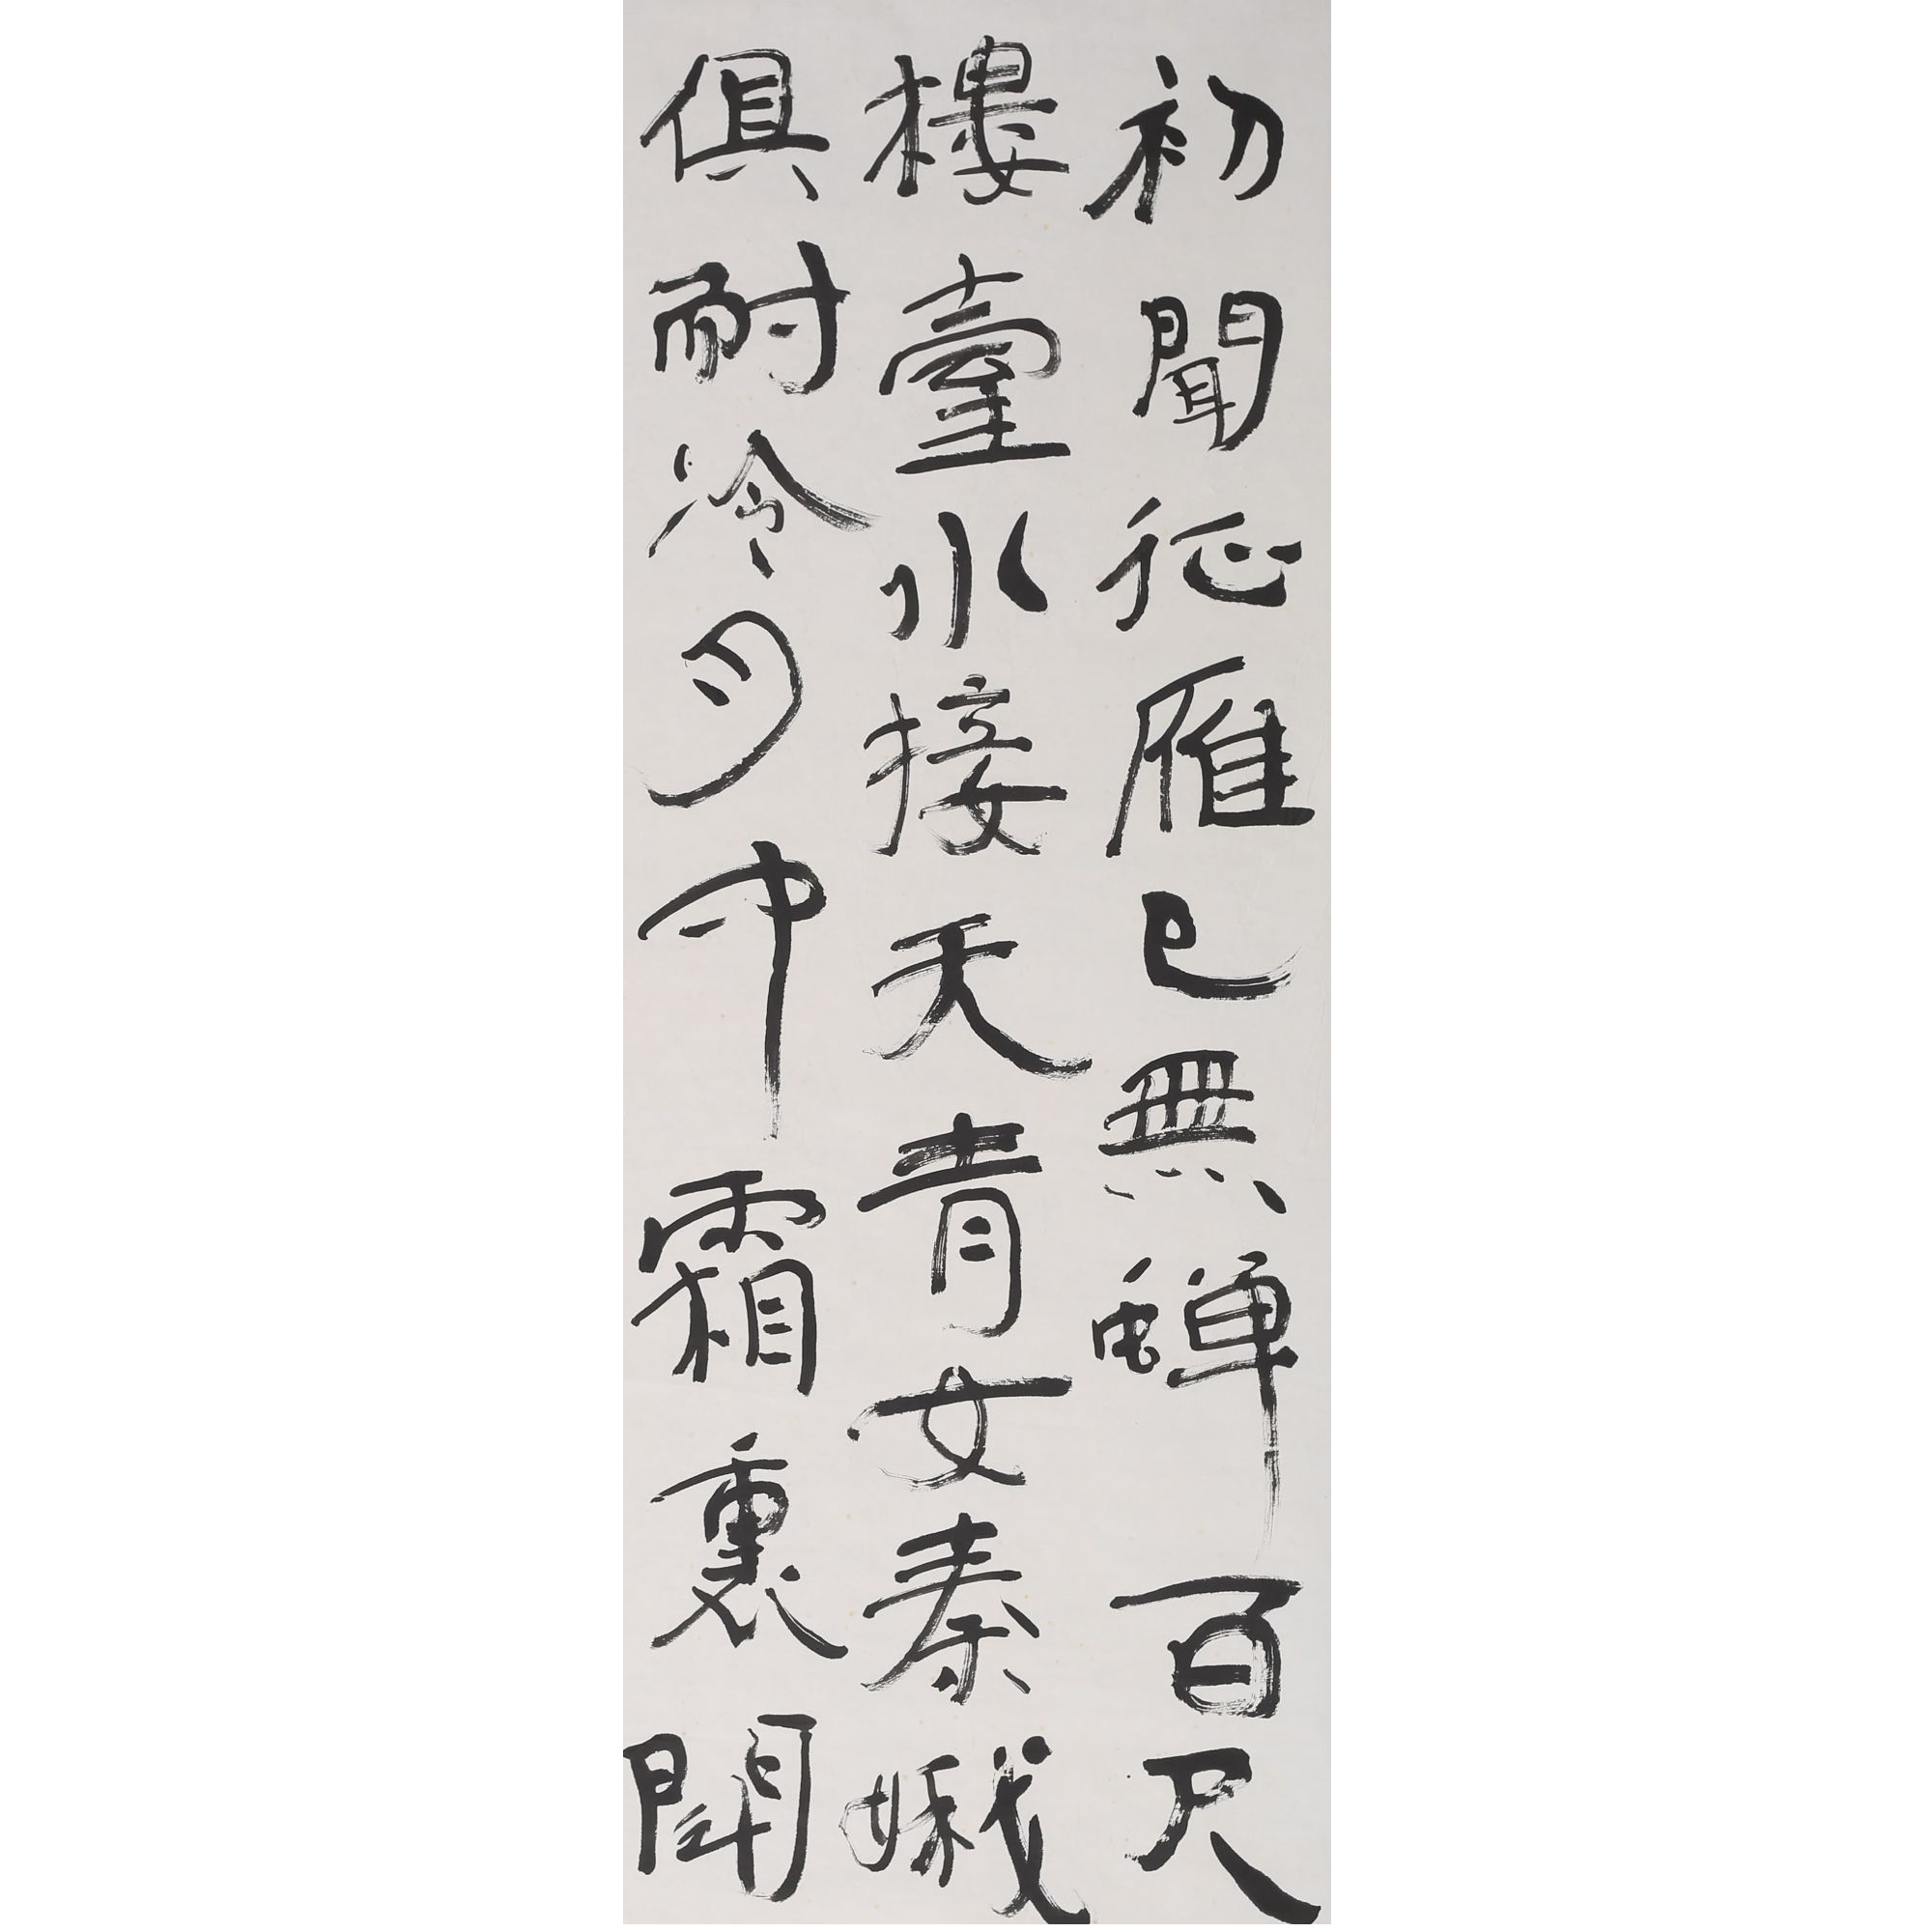 初聞征雁已無蟬百尺
樓臺水接天青女素娥
俱耐冷月中霜裏鬥